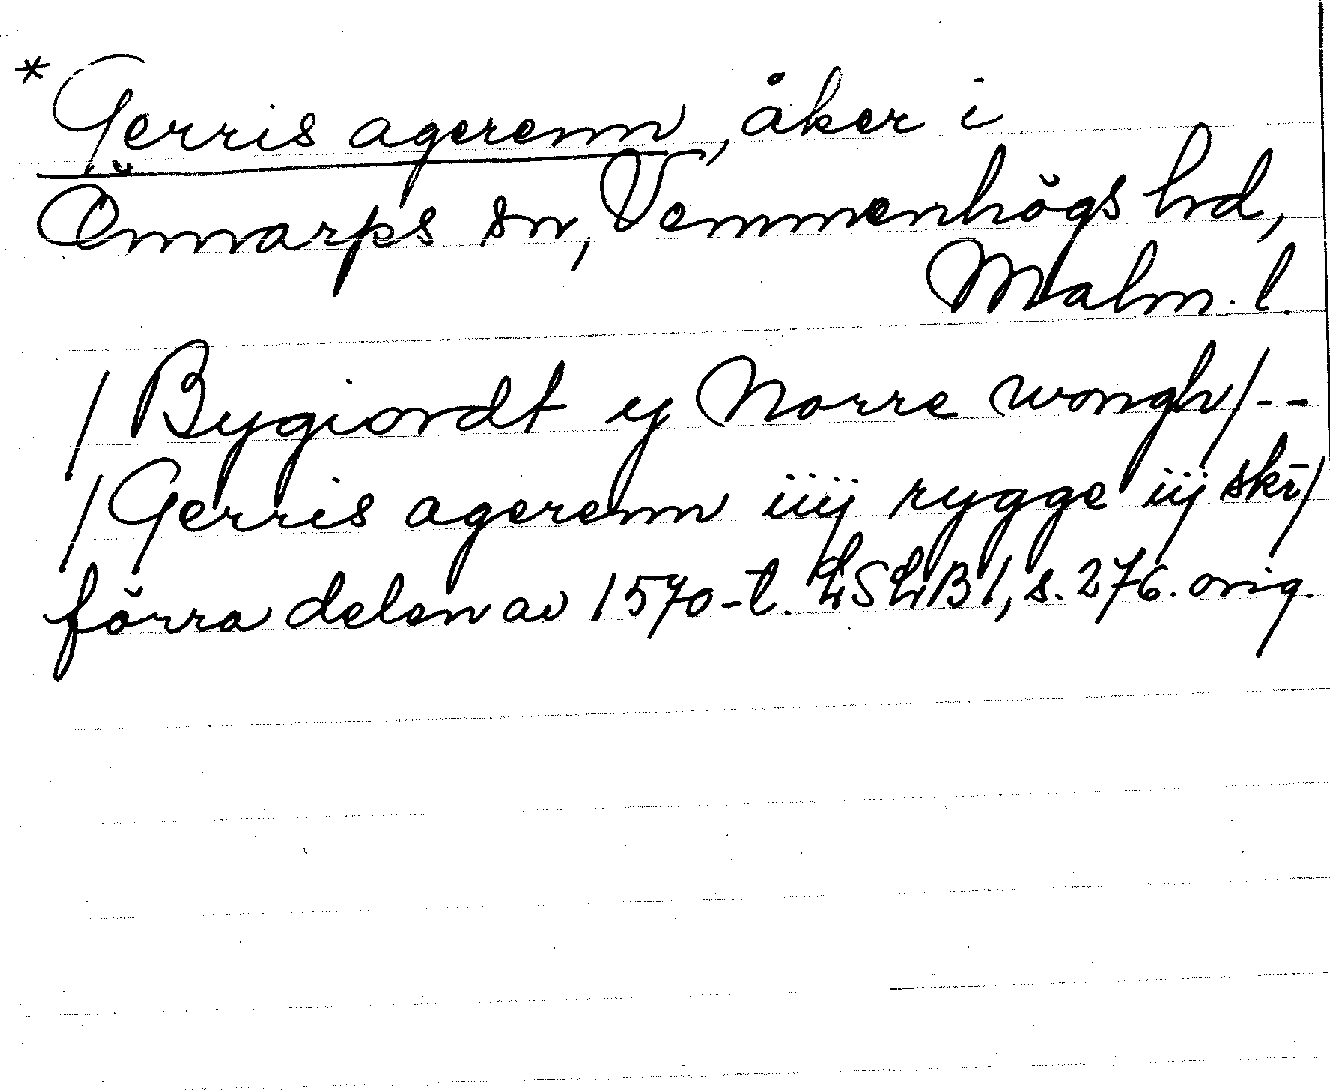 * Gerris agerenn, åker i
Önnarps sn, Vemmenhögs hd,
Malm. l.
/Bygiordt y Norre wongh/--
/Gerris agerenn iiij rygge iij skr/
förra delen av 1570-t. LSLB 1, s. 276. orig.